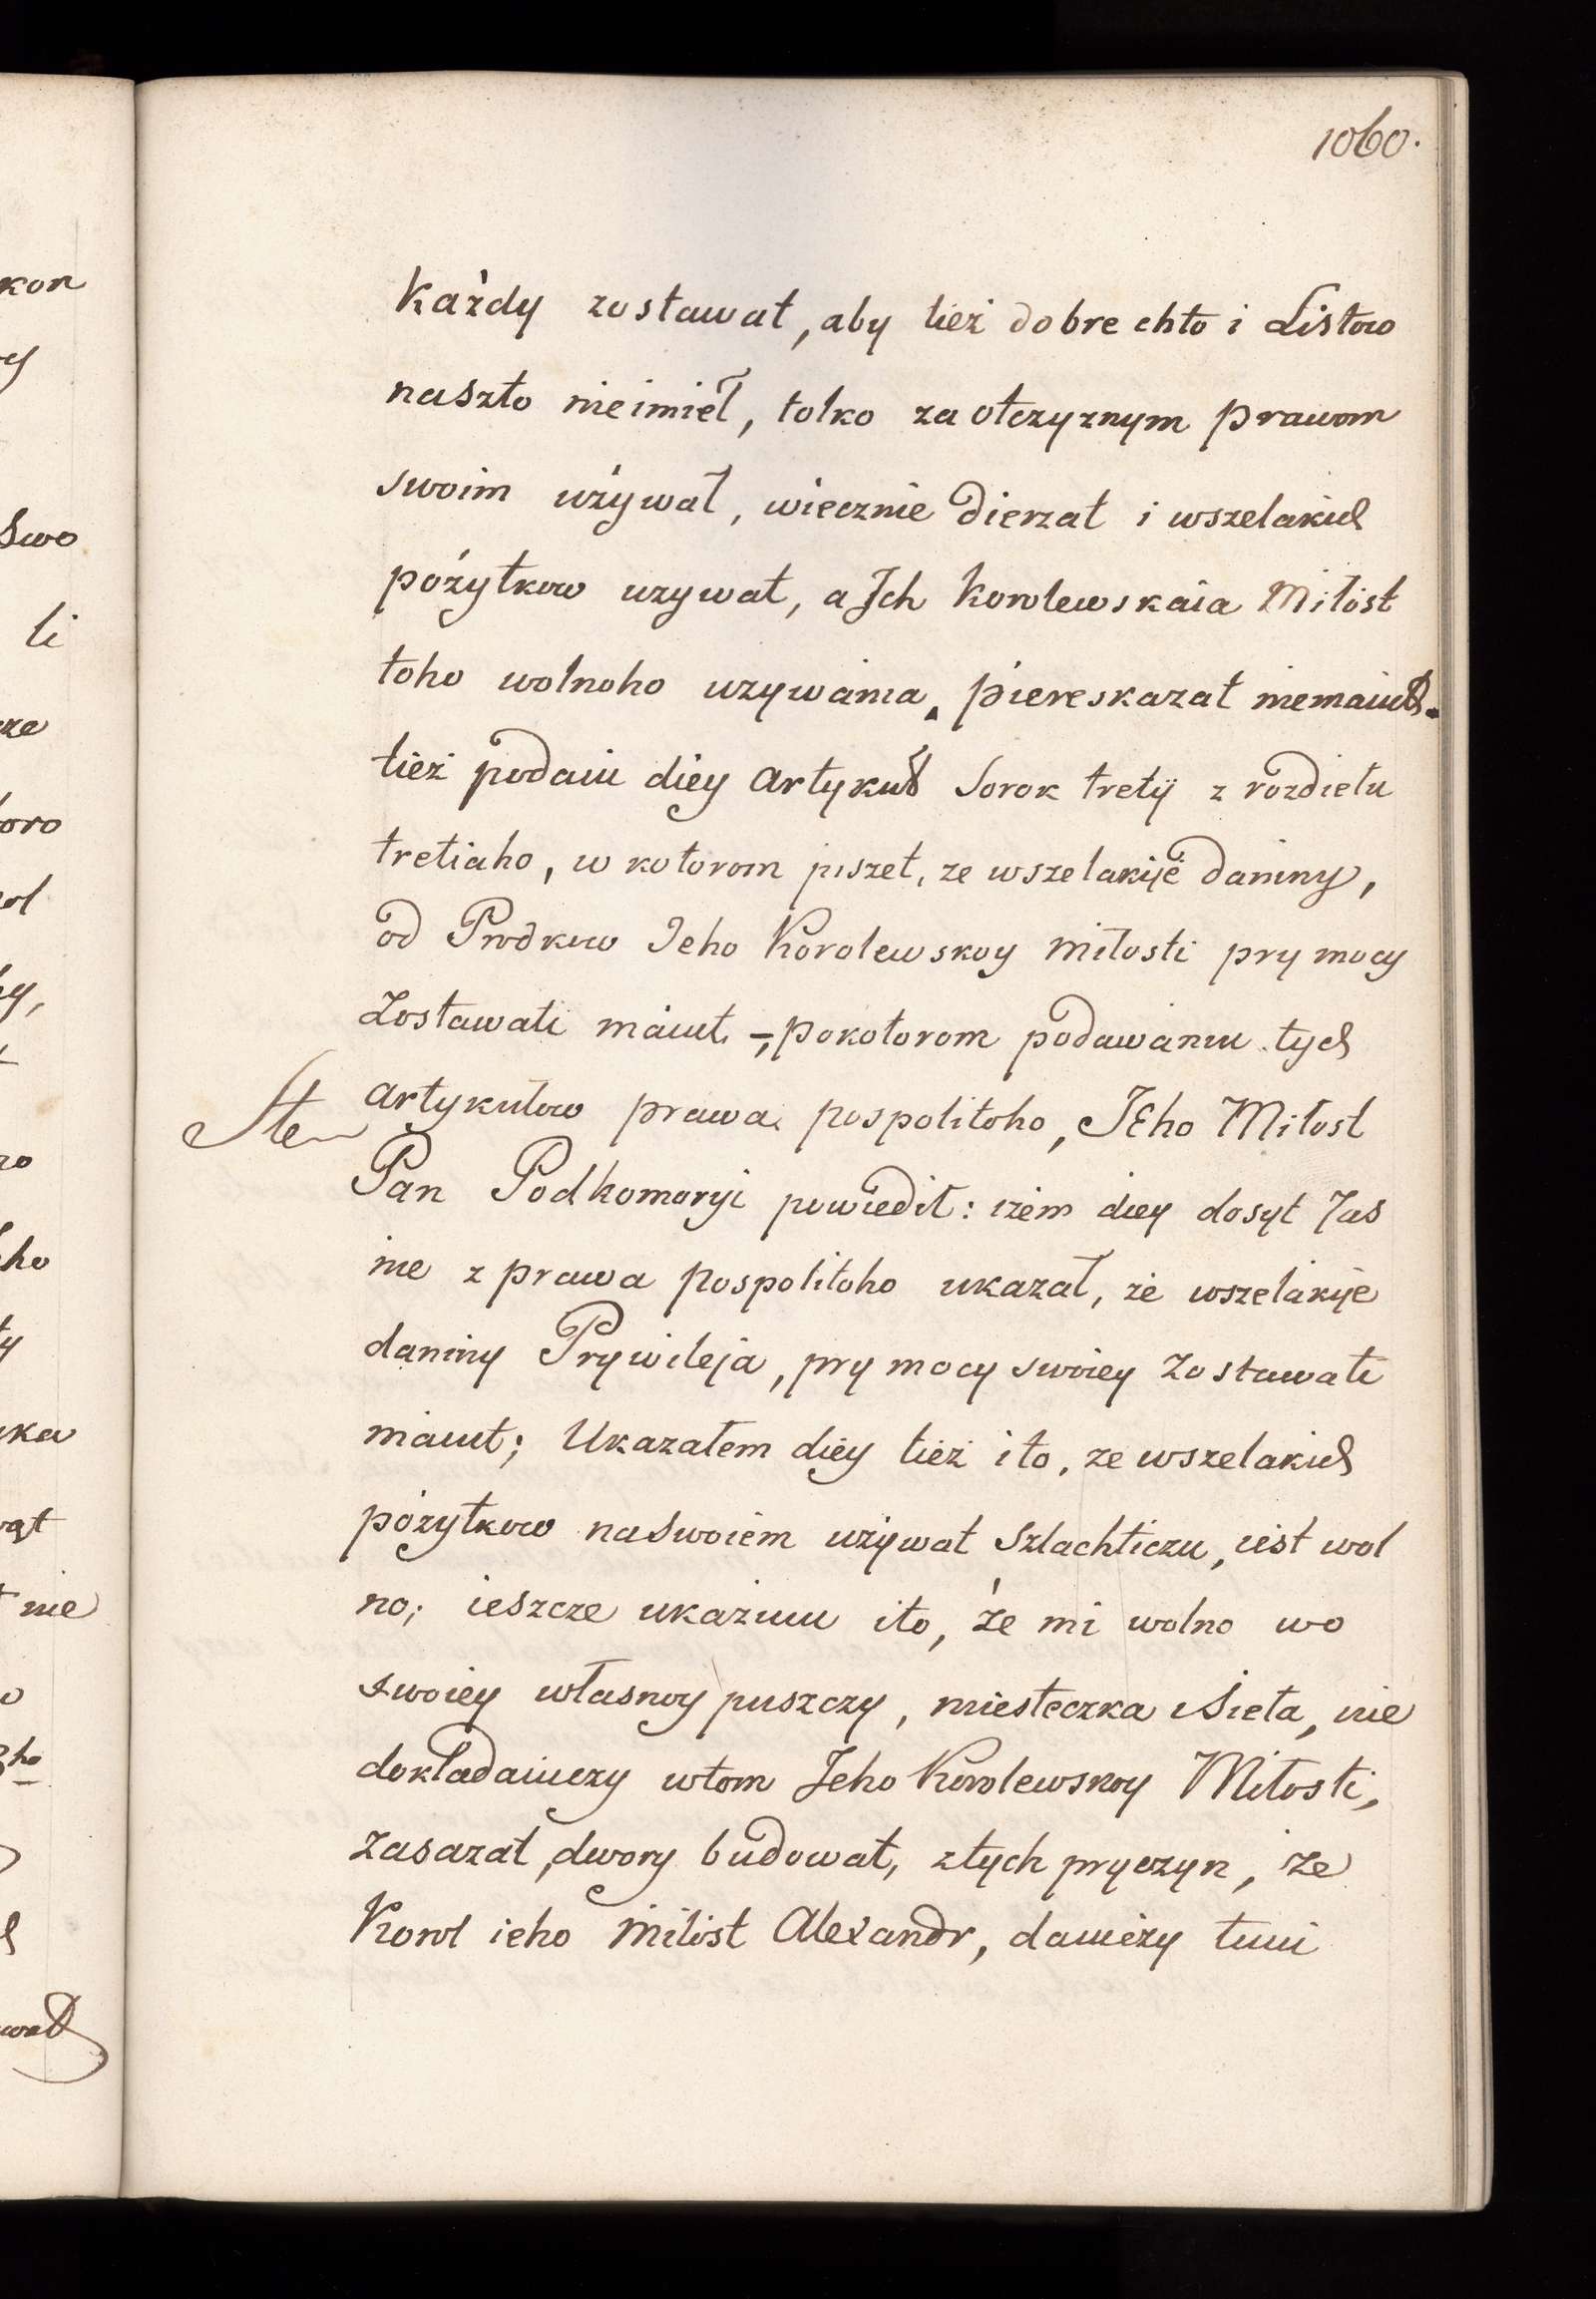 1060.
Każdy zostawał, aby tież dobre chto i Listow
naszto nieimieł, tolko za otczyznym prawom
swoim używał, wiecznie dierzat i wszelakich
pożytkow uzywat, a Ich Korolewskaia Miłost
toho wolnoho uzywania, piereskazat niemaiut.
tież podaiu diey Artykuł Sorok tretÿ z rozdiełu
tretiaho, w kotorom piszet, ze wszelakije daniny,
od Prodkow Jeho Korolewskoy Miłosti pry mocy
Zostawati maiut, -; pokotorom podawaniu tych
Artykułow prawa pospolitoho, JEho Miłost
Ste
Pan Podkomoryi powiedił: iżem diey dosyt Jas
nie z prawa pospolitoho ukazał, że wszelakije
daniny Prywileja, pry mocy swoiey Zostawati
maiut; Ukazałem diey tież ito, ze wszelakich
pożytkow naswoiem używat Szlachticzu, iest wol
no; ieszcze ukażiuu ito, że mi wolno wo
swoiey własnoy puszczy, miesteczka i Sieła, nie
dokładaiuczy wtom Jeho Korolewskoy Miłosti,
zasazat, dwory budowat, ztych pryczyn, że
Korol ieho Miłost Alexandr, dawiezy tuiu
kon
Swo
li
ze
oro
ol
zo
ho
ka
nie